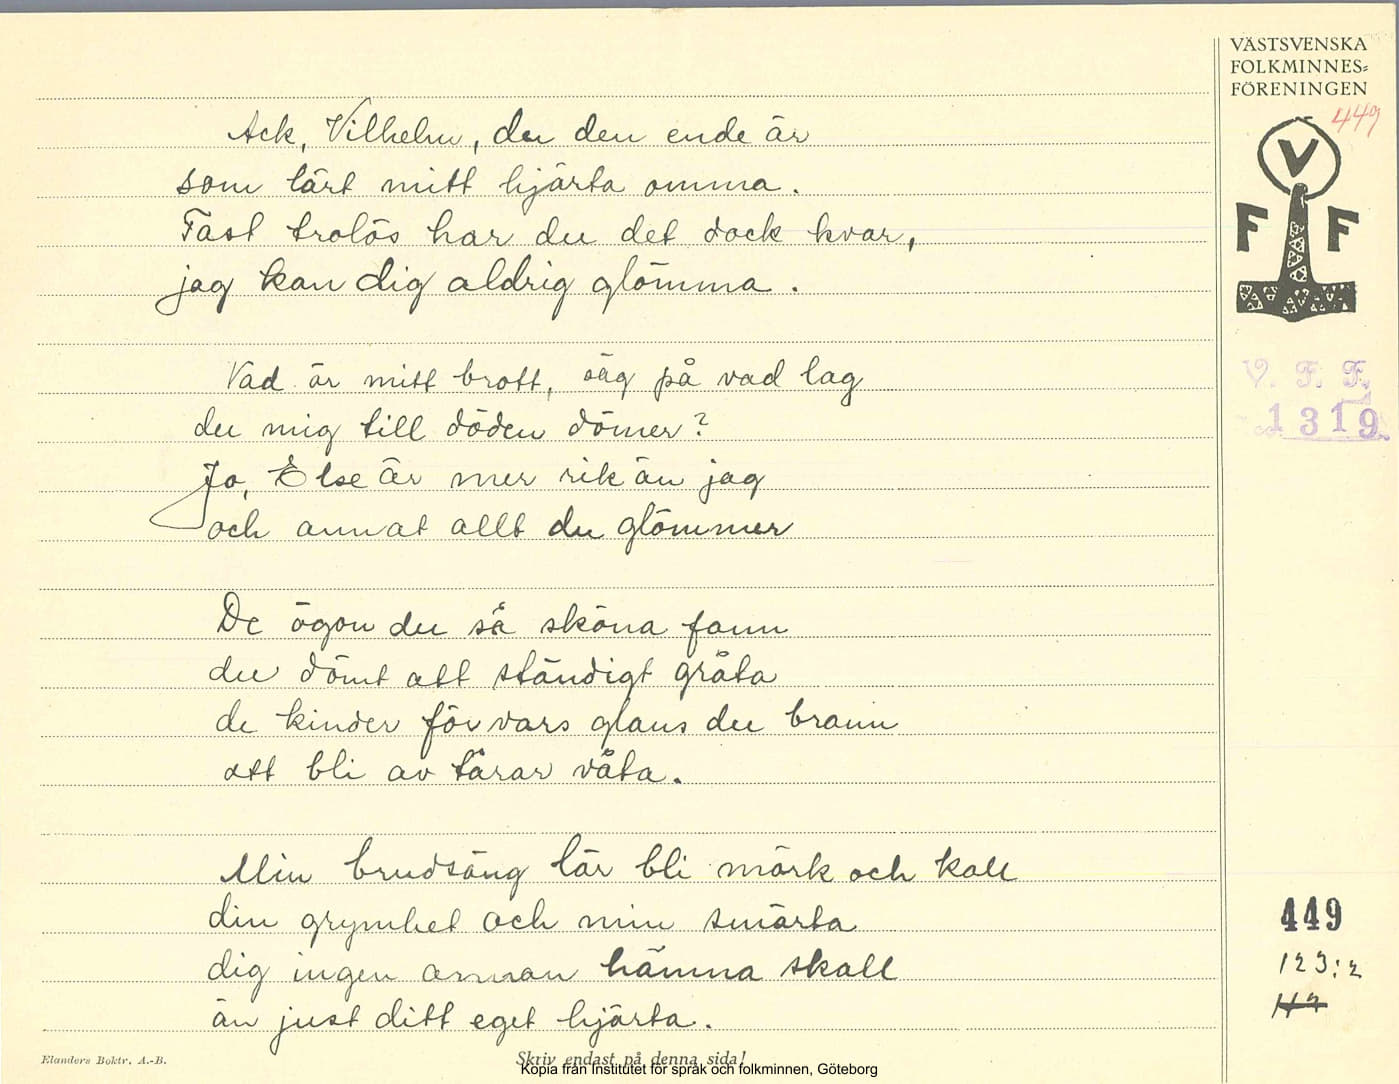 VÄSTSVENSKA
FOLKMINNES-
FÖRENINGEN
449
V
F F
V. F. F.
1319
Ack, Vilhelm, du den ende är
som lärt mitt hjärta ömma.
Fast trolös har du det dock kvar,
jag kan dig aldrig glömma.
Vad är mitt brott, säg på vad lag
du mig till döden dömer?
Jo, Else är mer rik än jag
och annat allt du glömmer
De ögon du så sköna fann
du dömt att ständigt gråta
de kinder för vars glans du brann
att bli av tårar våta.
Min brudsäng lär bli mörk och kall
din grymhet och min smärta
dig ingen annan hämna skall
än just ditt eget hjärta.
449
123:2
Elanders Boktr. A.-B.
Skriv endast på denna sida!
Kopia från Institutet för språk och folkminnen, Göteborg